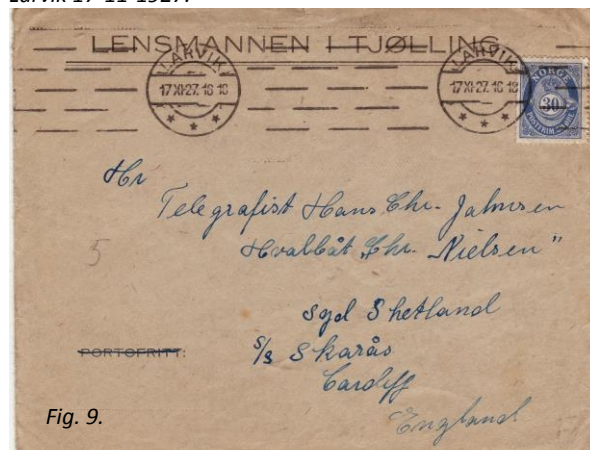 Larvik 17-11-1927.
LENSMANNEN I TJØLLING
LARVIK
17 XI 27. 16
LARVIK
17 XI 27. 16
NORGE
30
POSTFRIM
Hr
Telegrafist Hans Chr. Jahnsen
Hvalbåt "Chr. Nielsen"
5
Syd Shetland
PORTOFRITT:
s/s Skarås
Cardiff
England
Fig. 9.